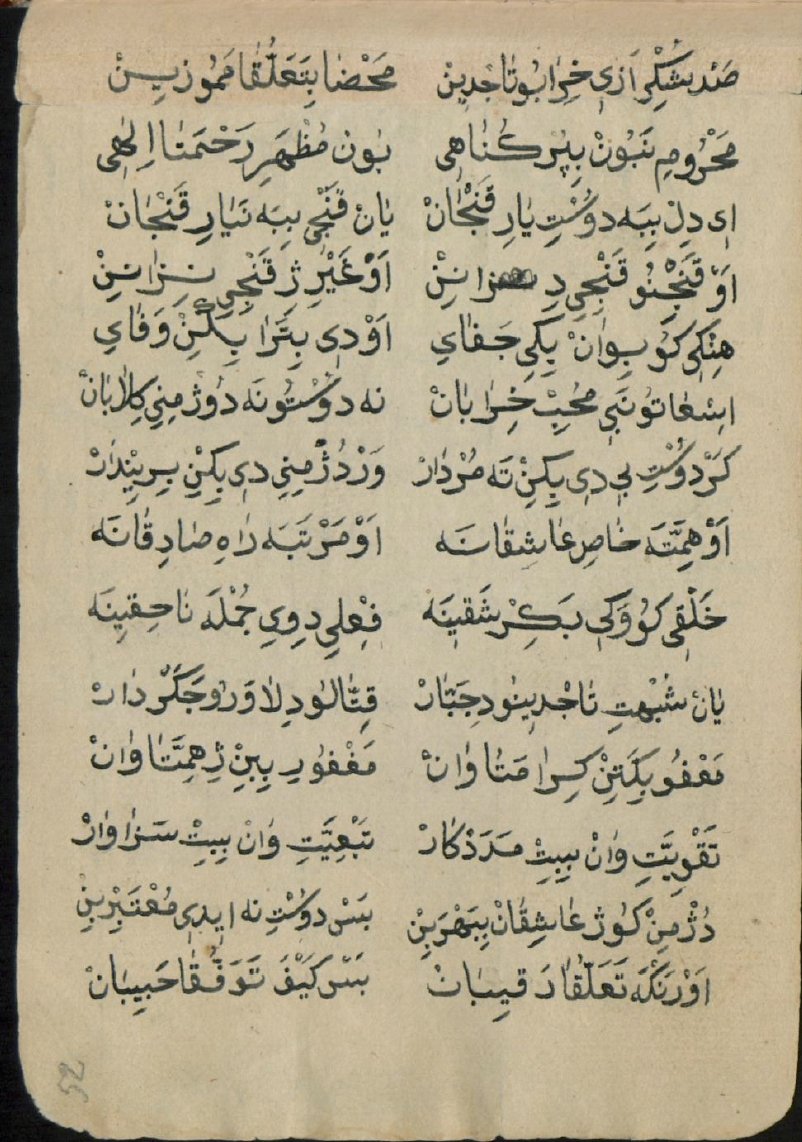 صَدْ شُكْر اَزِي خِرَابُو تَاجْدِينْ مَحْضَا بِتَعَلُّقَا مَمُو زِيـنْ
مَحْرُومِ نَبُونْ بِپُرْ كُنَاهِي بُونْ مُظْهَرِ رَحْمَتَا اِلٰهِي
اِي دِلْ بِبَه دوُسْتِ يَارِ قَنْجَانْ يَانْ قَنْجِي بِبَه نَيَارِ قَنْجَانْ
اَوْ قَنْجِنُو قَنْجِيِ دِ زَانِنْ اَوْ غَيْرِ ژِ قَنْجِيِ نِزَانِنْ
هِنْكِي كُو بِوَانْ بِكَي جَفَايِ اَوْ دِي بِتَرَا بِكِنْ وَفَايِ
اِسْعَا تُو نَبِي مُحِبِّ خِرَابَانْ نه دوُسْتُو نَه دُوژْمِنِي كِلَابَانْ
كَرْ دوُسْتِ بِي دِي بِكِنْ تَه مُرْدَارْ وَرْ دُژْمِنِي دِي بِكِنْ بِرِينْدَارْ
اَوْ هِمَّتَه خَاصِ عَاشِقَانَه اَوْ مَرْتَبَه رَاهِ صَادِقَانَه
خَلْقِي كُو وَكِي بَكِرْ شَقِينَه فِعْلِي دِوِي جُمْلَه نَاحِقِينَه
يَانْ شُبْهَتِ تَاجْدِينُو دِجَبَّارْ قِتَّالُو دِلَاوَرُو جَكَرْ دَارْ
مَعْفُو بِكَتِنْ كِرَا مَتَا وَانْ مَغْفُورِ بِبِنْ ژِ هِمَّتَا وَانْ
تَقْوِيَّتِ وَانْ بِبِتْ مَدَدْكَارْ تَبْعِيَّتِ وَانْ بِبِتْ سَزَاوَارْ
دُژْمِنْ كَوُژْ عَاشِقَانْ بِبَهْرَبِنْ بَسْ دوُسْتِ نه اِيدِي مُعْتَبَرْبِنْ
اَوْ رَنْكَه تَعَلُّقَا رَقِيبَانْ بَسْ كَيْفَ تَوَفُّقَا حَبِيبَانْ
52